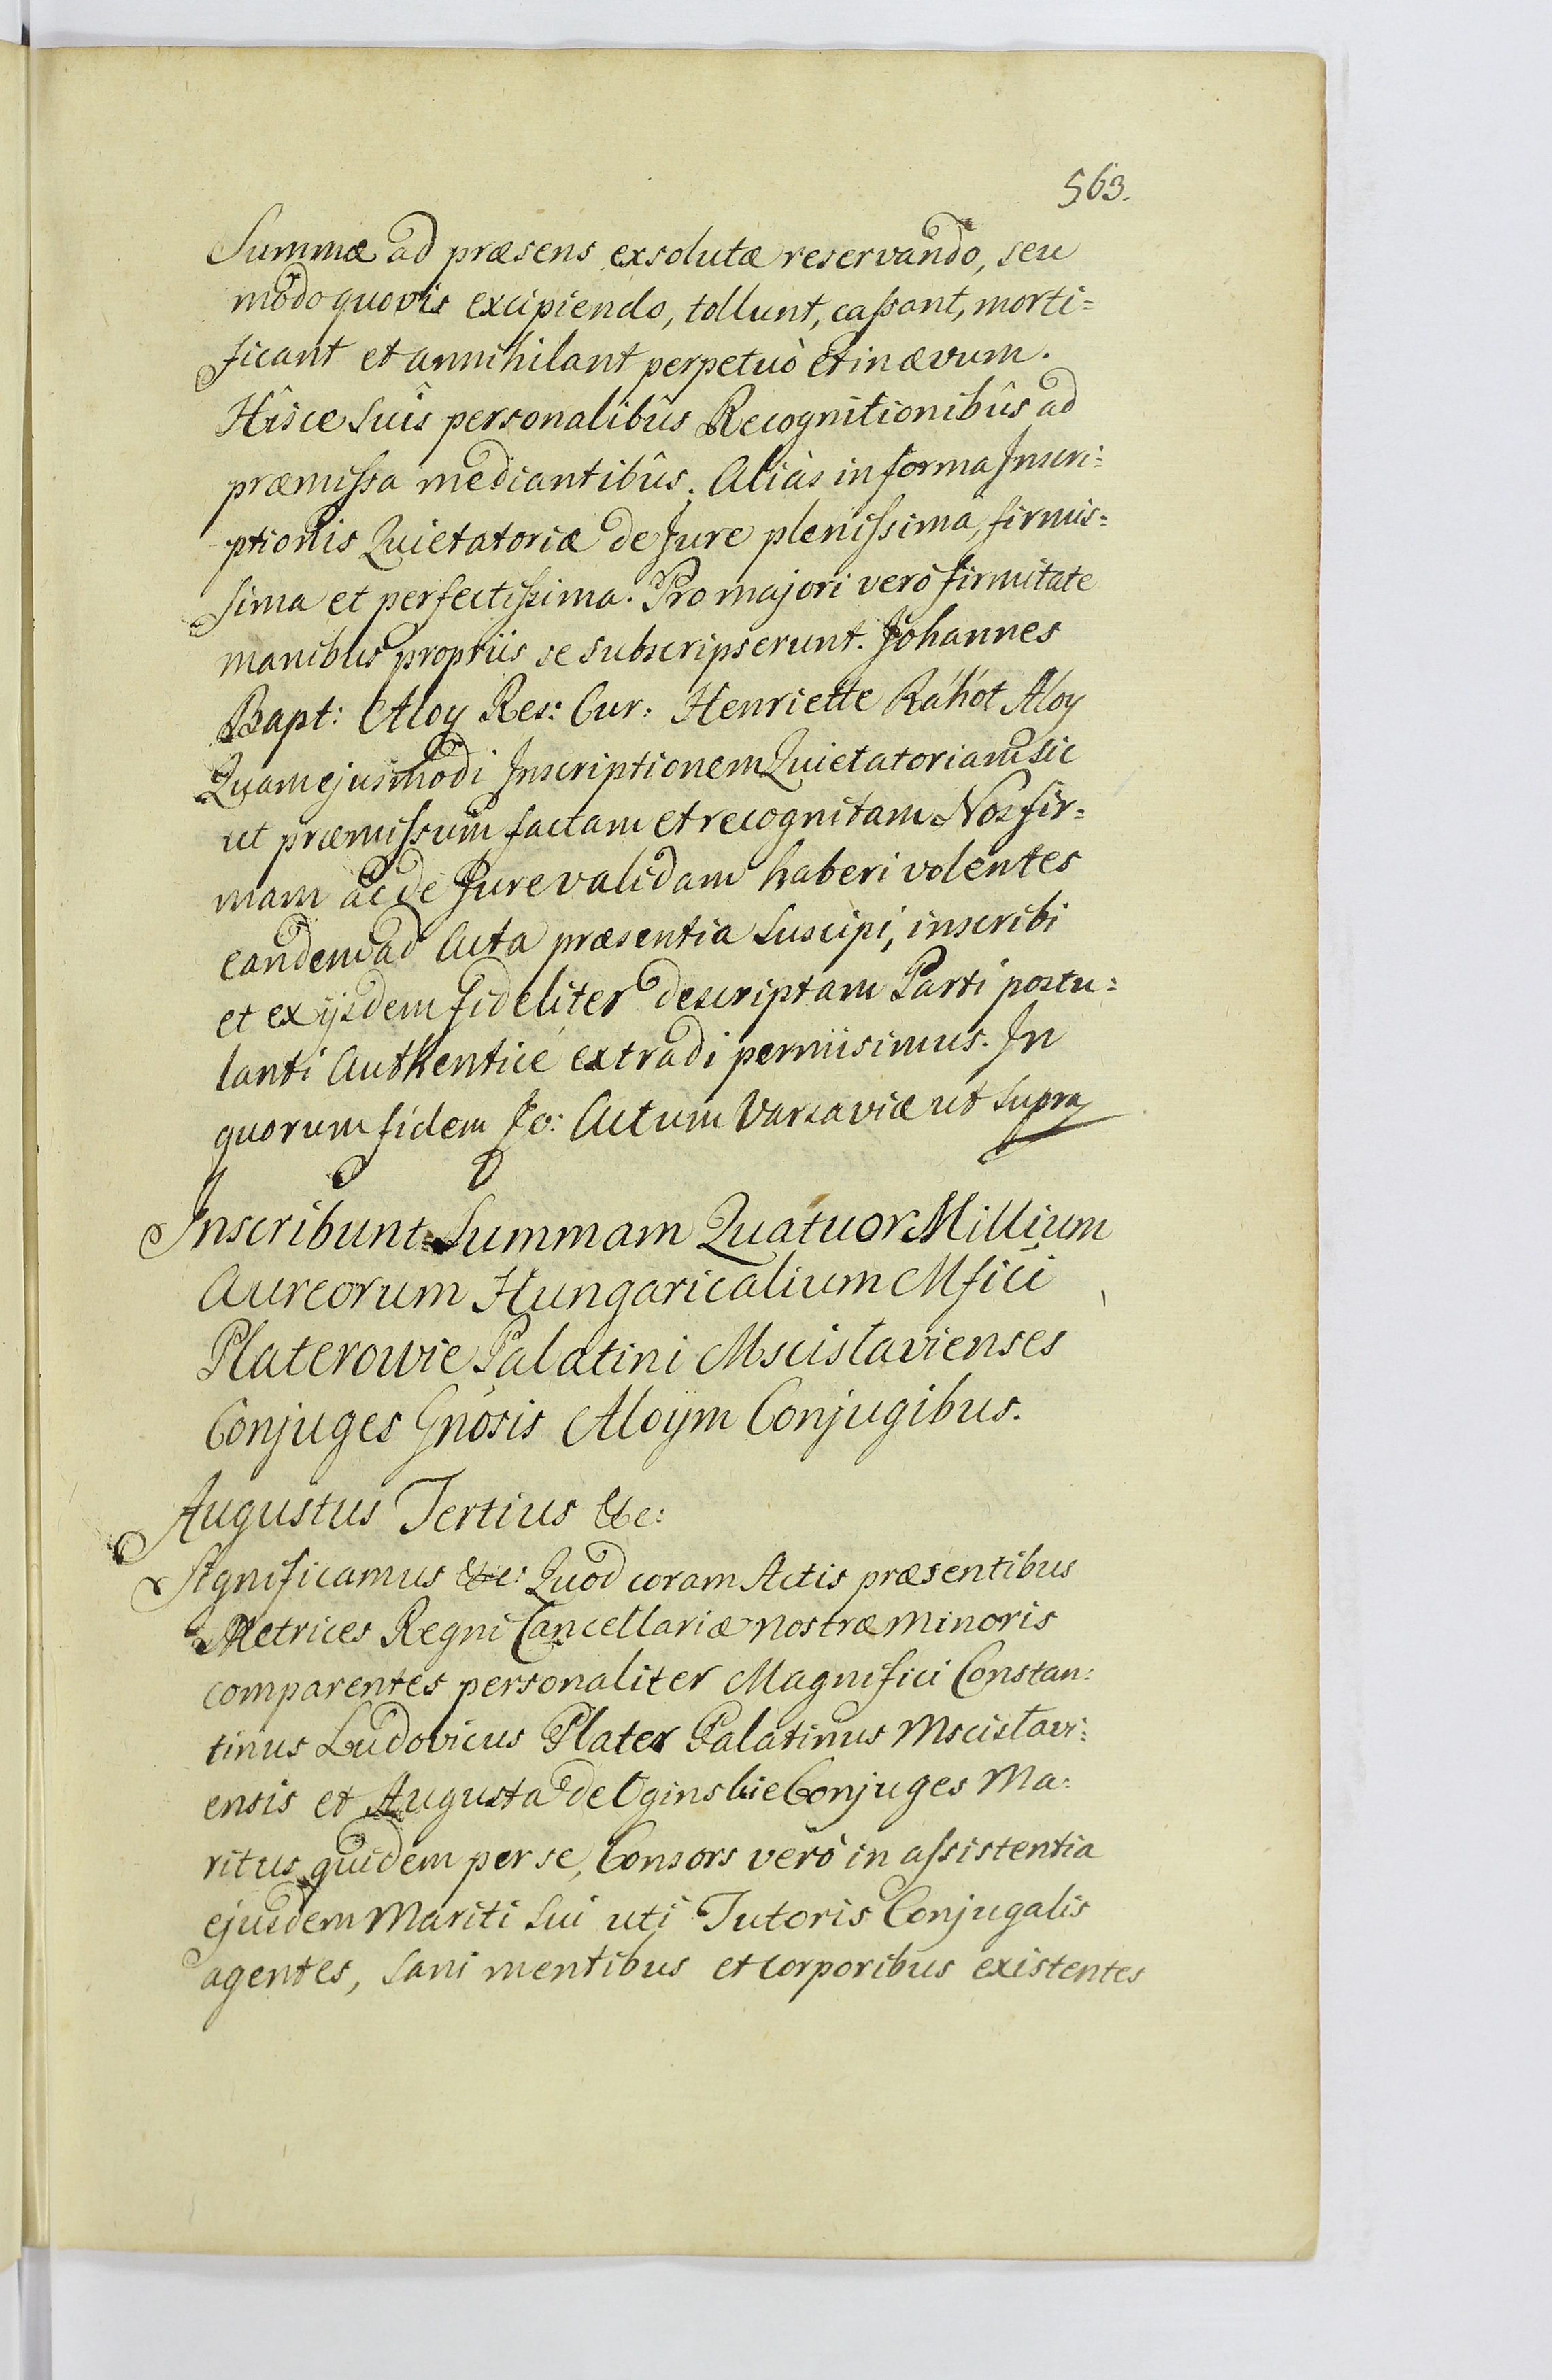 563.
Summæ ad præsens exsolutæ reservando, seu
modo quovis excipiendo, tollunt, cassant, morti=
ficant et annihilant perpetuò et in ævum.
Hîsce suîs personalibûs Recognitionibûs ad
præmissa mediantibûs. Aliàs in forma Inscri=
ptionis Quietatoriæ de Jure plenissima, firmis=
sima et perfectissima. Pro majori verò firmitate
manibus propriis se subscripserunt. Johannes
Bapt: Aloy Res: Cur: Henriette Ráhot Aloy
Quam ejusmodi Inscriptionem Quietatoriam sic
ut præmissum factam et recognitam Nos fir=
mam ac de Jure validam haberi volentes
eandem ad Acta præsentia suscipi, inscribi
et ex ijsdem fideliter descriptam Parti postu=
lanti Authenticè extradi permisimus. In
quorum fidem Actum Varsaviæ ut supra
Inscribunt Summam Quatuor Millium
Aureorum Hungaricalium Mfici
Platerowie Palatini Mscislavienses
Conjuges Gnosis Aloym Conjugibus.
Augustus Tertius &c:
Significamus &c: Quod coram Actis præsentibus
Metrices Regni Cancellariæ nostræ minoris
comparentes personaliter Magnifici Constan=
tinus Ludovicus Plater Palatinus Mscislavi=
ensis et Augusta de Oginskie Conjuges Ma=
ritus quidem per se, Consors verò in assistentia
ejusdem Mariti sui uti Tutoris Conjugalis
agentes, sani mentibus et corporibus existentes